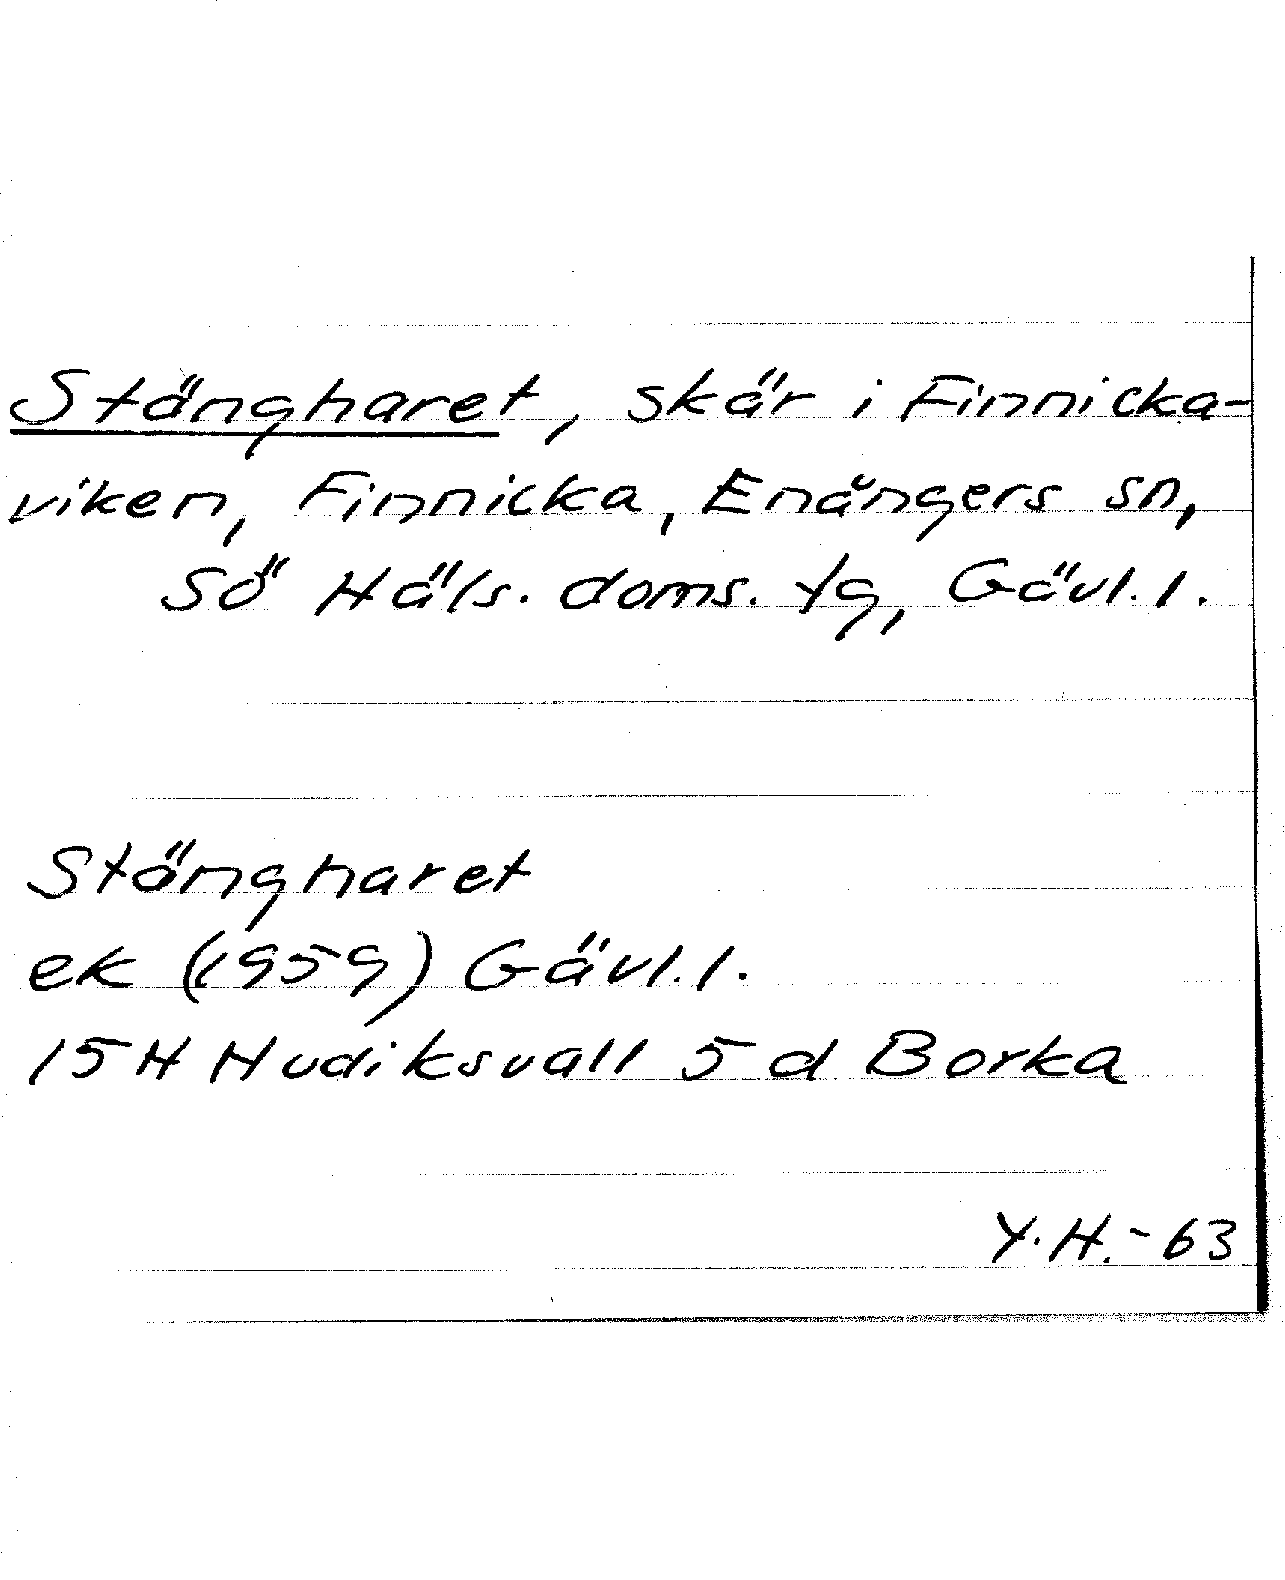 Stängharet, skär i Finnicka-
viken, Finnicka, Enångers sn,
Sö Häls. doms. tg, Gävl. l.
Stängharet
ek (1959) Gävl. l.
15 H Hudiksvall 5 d Borka
Y.H. - 63